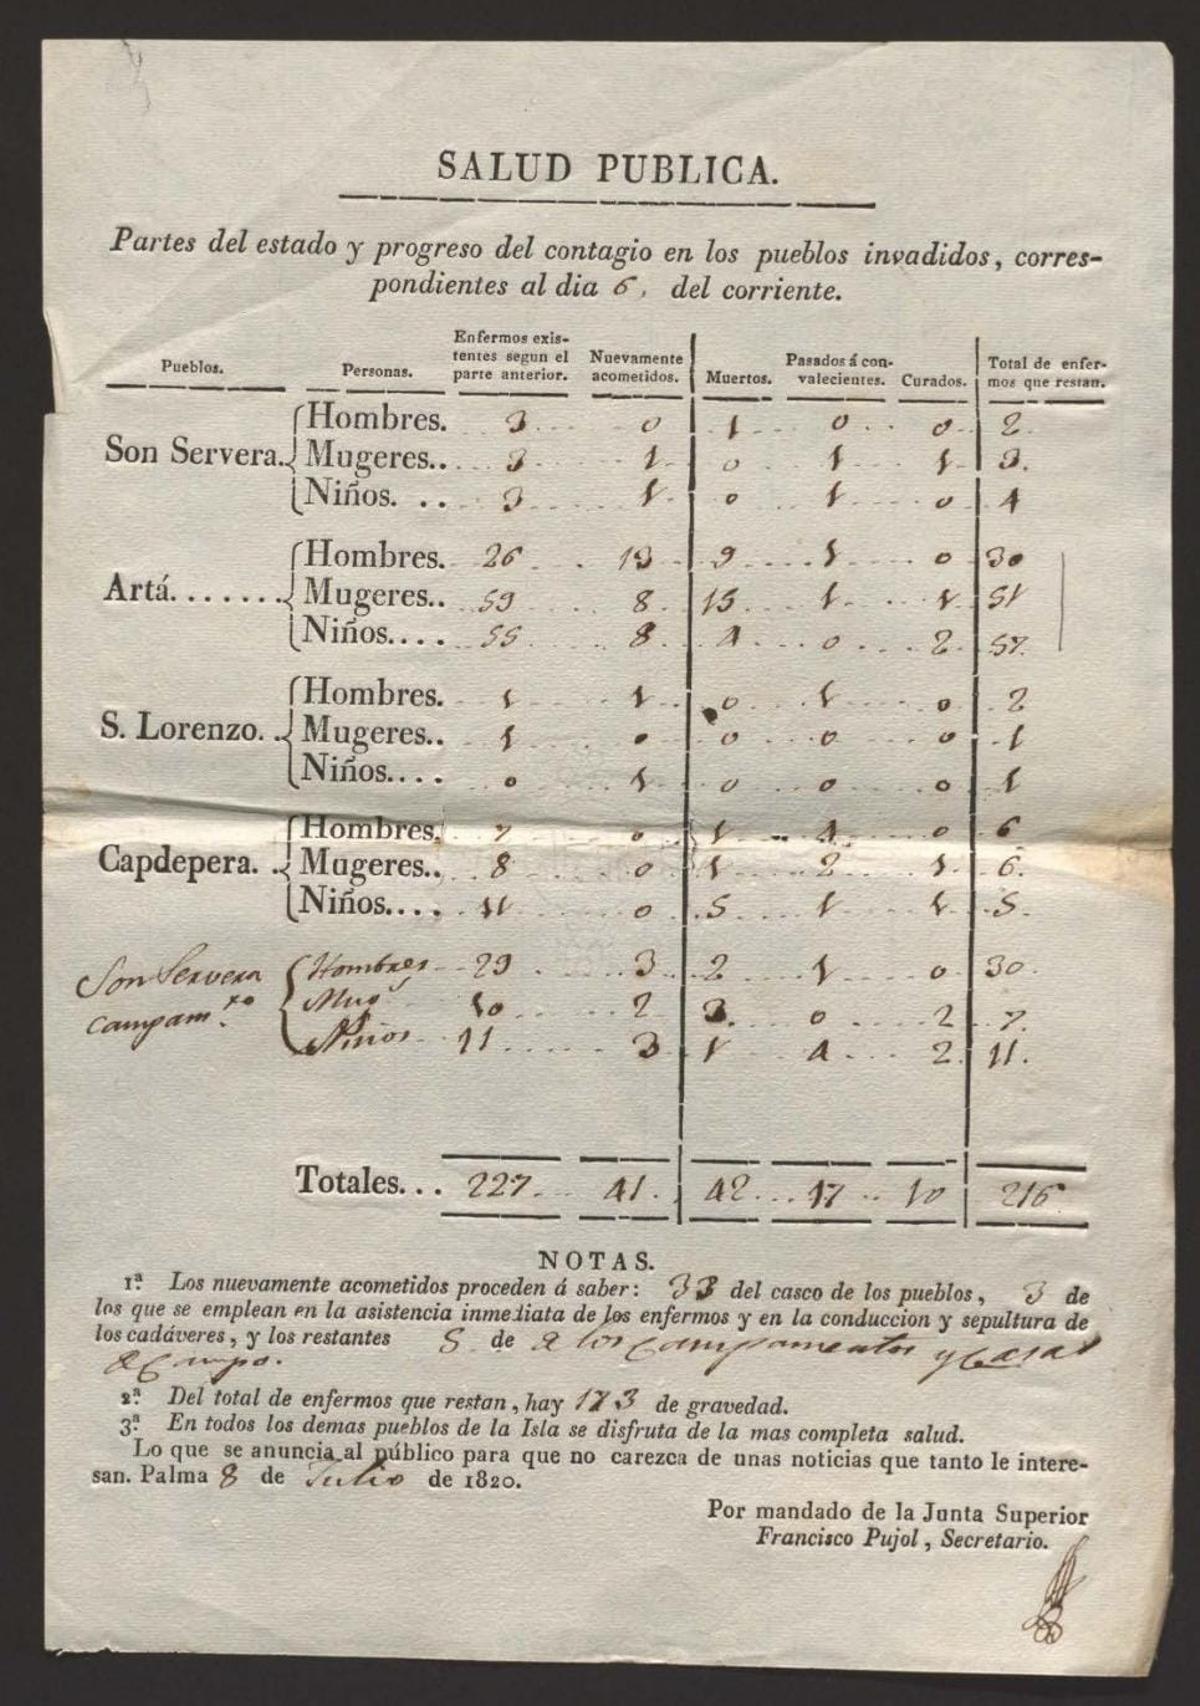 SALUD PUBLICA.
Partes del estado y progreso del contagio en los pueblos invadidos, corres-
pondientes al dia 6, del corriente.
Pueblos. Personas. Enfermos exis-tentes segun el parte anterior. Nuevamente acometidos. Muertos. Pasados á con-valecientes. Curados. Total de enfer-mos que restan.
Son Servera. Hombres. 3 0 1 0 0 2
Mugeres.. 3 1 0 1 1 3.
Niños. .. 3 1 0 1 0 4
Artá....... Hombres. 26 13 9 1 0 30
Mugeres.. 59 8 15 1 1 51
Niños.... 55 8 4 0 2 57.
S. Lorenzo. . Hombres. 1 1 0 1 0 2
Mugeres.. 1 0 0 0 0 1
Niños.... 0 1 0 0 0 1
Capdepera. . Hombres. 7 0 1 4 0 6
Mugeres.. 8 0 1 2 1 6.
Niños.... 11 0 5 1 1 5.
Son Servera Hombres 29 3 2 1 0 30.
campam.to Mug.s 10 2 3. 0 2 7.
Niños 11 3 1 4 2 11.
Totales... 227 41. 42 17 10 216
NOTAS.
1.ª Los nuevamente acometidos proceden á saber: 33 del casco de los pueblos, 3 de
los que se emplean en la asistencia inmediata de los enfermos y en la conduccion y sepultura de
los cadáveres, y los restantes 5 de a los campamentos y Casas
d Campo.
2.ª Del total de enfermos que restan, hay 173 de gravedad.
3.ª En todos los demas pueblos de la Isla se disfruta de la mas completa salud.
Lo que se anuncia al público para que no carezca de unas noticias que tanto le intere-
san. Palma 8 de Julio de 1820.
Por mandado de la Junta Superior
Francisco Pujol, Secretario.